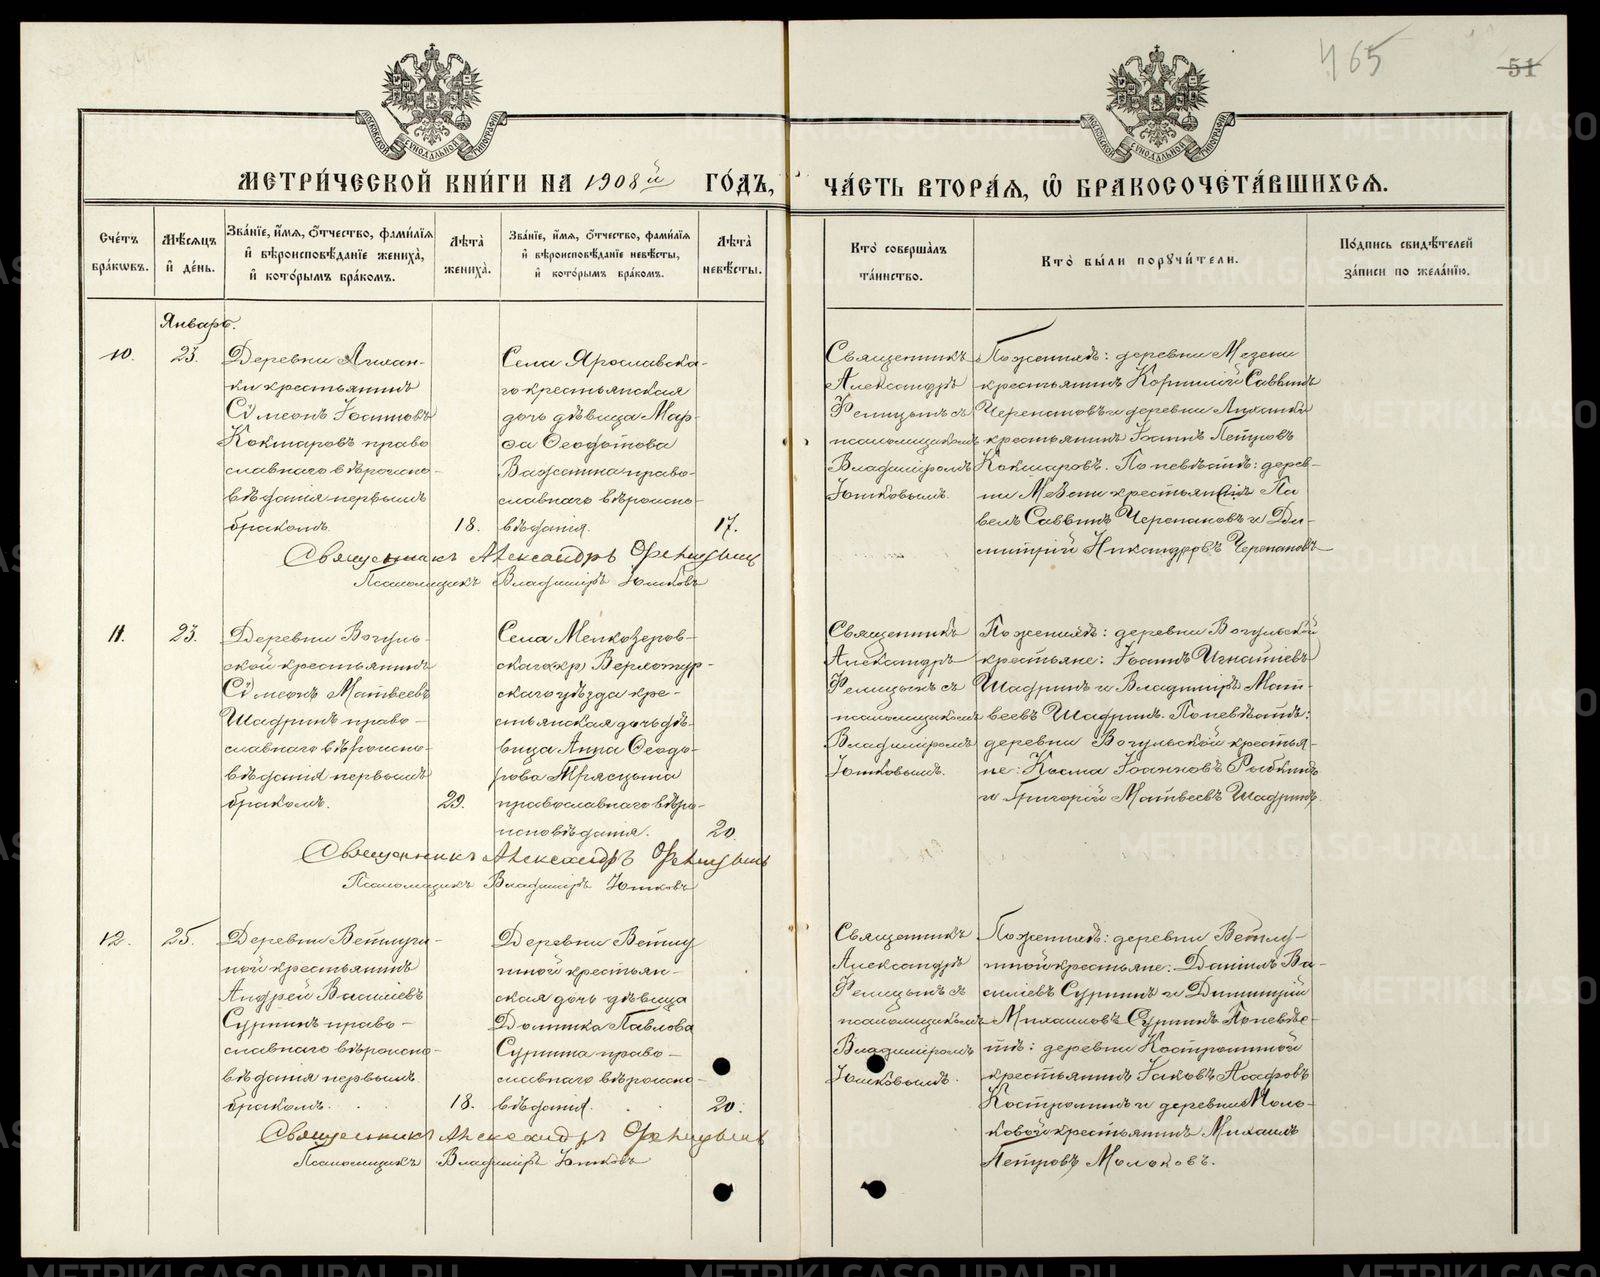 465
51
МЕТРИ́ЧЕСКОЙ КНИ́ГИ НА 1908й ГО́ДЪ, ЧА́СТЬ ВТОРА́Я, Ѡ БРАКОСОЧЕТА́ВШИХСЯ.
Сче́тъ бра́кѡвъ.
Мѣ́сяцъ и҆ де́нь.
Зва́нїе, и҆́мя, ѻ҆́тчество, фами́лїя
и҆ вѣроисповѣ́данїе жениха̀,
и҆ кото́рымъ бра́комъ.
Лѣта̀ жениха̀.
Зва́нїе, и҆́мя, ѻ҆́тчество, фами́лїя
и҆ вѣроисповѣ́данїе невѣ́сты,
и҆ кото́рымъ бра́комъ.
Лѣта̀ невѣ́сты.
Кто̀ соверша́лъ
та́инство.
Кто̀ бы́ли порꙋчи́тели.
По́дпись свидѣ́телей
за́писи по жела́нїю.
Январь.
10.
23.
Деревни
крестьянинъ
Сѵмеонъ Іоанновъ
Кокшаровъ право
славнаго вѣроиспо-
вѣданія первымъ
бракомъ.
18.
Села Ярославска-
го крестьянская
дочь дѣвица Мар-
ѳа Ѳеодотова
Важенина право-
славнаго вѣроиспо-
вѣданія.
17.
Священникъ
Александръ
Феницынъ съ
псаломщикомъ
Владиміромъ
Юшковымъ.
По женихѣ: деревни Мезени
крестьянинъ Корнилій Саввинъ
Черепановъ и деревни
крестьянинъ Іоаннъ Петровъ
Кокшаровъ. По невѣстѣ: дерев-
ни Мезени крестьяне Па
велъ Саввинъ Черепановъ и Ди-
митрій Никандровъ Черепановъ
Священникъ Александръ Феницынъ
Псаломщикъ Владиміръ Юшковъ
11.
23.
Деревни Вогуль-
ской крестьянинъ
Сѵмеонъ Матвеевъ
Шадринъ право-
славнаго вѣроиспо-
вѣданія первымъ
бракомъ.
29.
Села Мелкозеров-
скаго Верхотур-
скаго уѣзда кре-
стьянская дочь дѣ-
вица Анна Ѳеодо-
рова Трясцына
православнаго вѣро-
исповѣданія.
20.
Священникъ
Александръ
Феницынъ съ
псаломщикомъ
Владиміромъ
Юшковымъ.
По женихѣ: деревни Вогульской
крестьяне: Іоаннъ Игнатіевъ
Шадринъ и Владиміръ Мат-
веевъ Шадринъ. По невѣстѣ:
деревни Вогульской крестья-
не: Косма Іоанновъ Рыбкинъ
и Григорій Матвеевъ Шадринъ.
Священникъ Александръ Феницынъ
Псаломщикъ Владиміръ Юшковъ
12.
25.
Деревни Ветлуги-
ной крестьянинъ
Андрей Василіевъ
Суринъ право-
славнаго вѣроиспо-
вѣданія первымъ
бракомъ.
18.
Деревни
крестьян-
ская дочь дѣвица
Домника Павлова
Сурнина право-
славнаго вѣроиспо-
вѣданія.
20.
Священникъ
Александръ
Феницынъ съ
псаломщикомъ
Владиміромъ
Юшковымъ.
По женихѣ: деревни
крестьяне: Даніилъ Ва-
силіевъ и Димитрій
Михаиловъ По невѣс-
тѣ: деревни Костроминой
крестьянинъ Іаковъ Агафовъ
Костроминъ и деревни Моло-
ковой крестьянинъ Михаилъ
Петровъ Молоковъ.
Священникъ Александръ Феницынъ
Псаломщикъ Владиміръ Юшковъ
METRIKI.GASO-URAL.RU